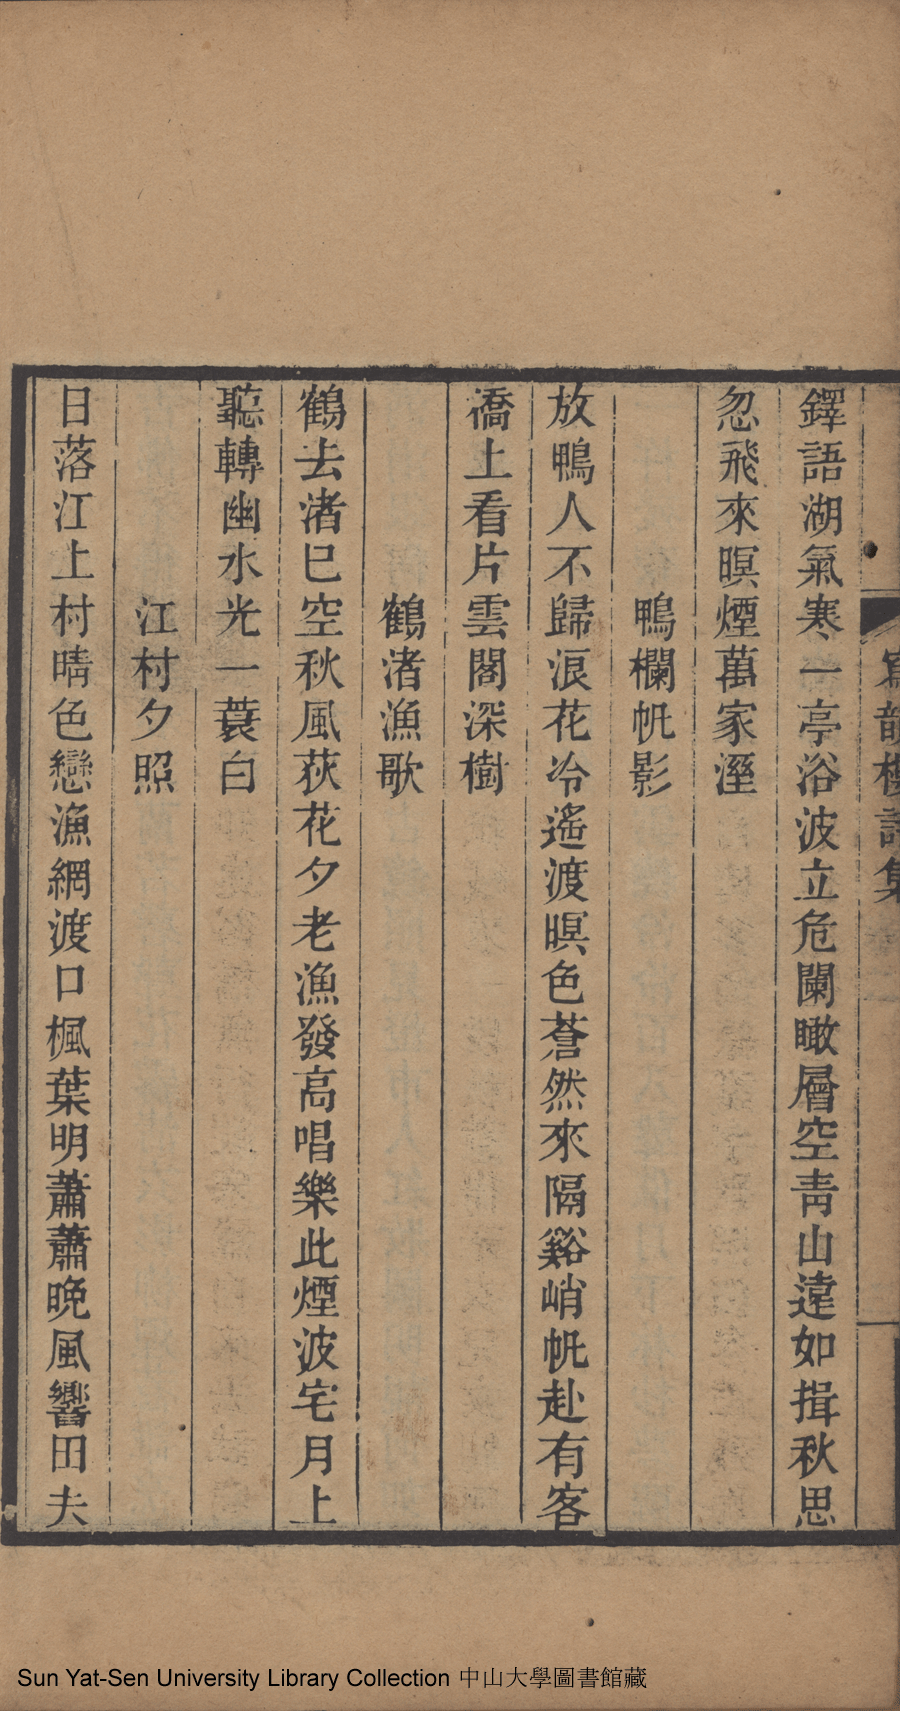 寫韻樓詩集
鐸語湖氣寒一亭浴波立危闌瞰層空靑山遠如揖秋思
忽飛來暝煙萬家溼
鴨欄帆影
放鴨人不歸浪花冷遙渡暝色蒼然來隔谿峭帆赴有客
橋上看片雲閣深樹
鶴渚漁歌
鶴去渚已空秋風荻花夕老漁發高唱樂此煙波宅月上
聽轉幽水光一蓑白
江村夕照
日落江上村晴色戀漁網渡口楓葉明蕭蕭晚風響田夫
Sun Yat-Sen University Library Collection 中山大學圖書館藏